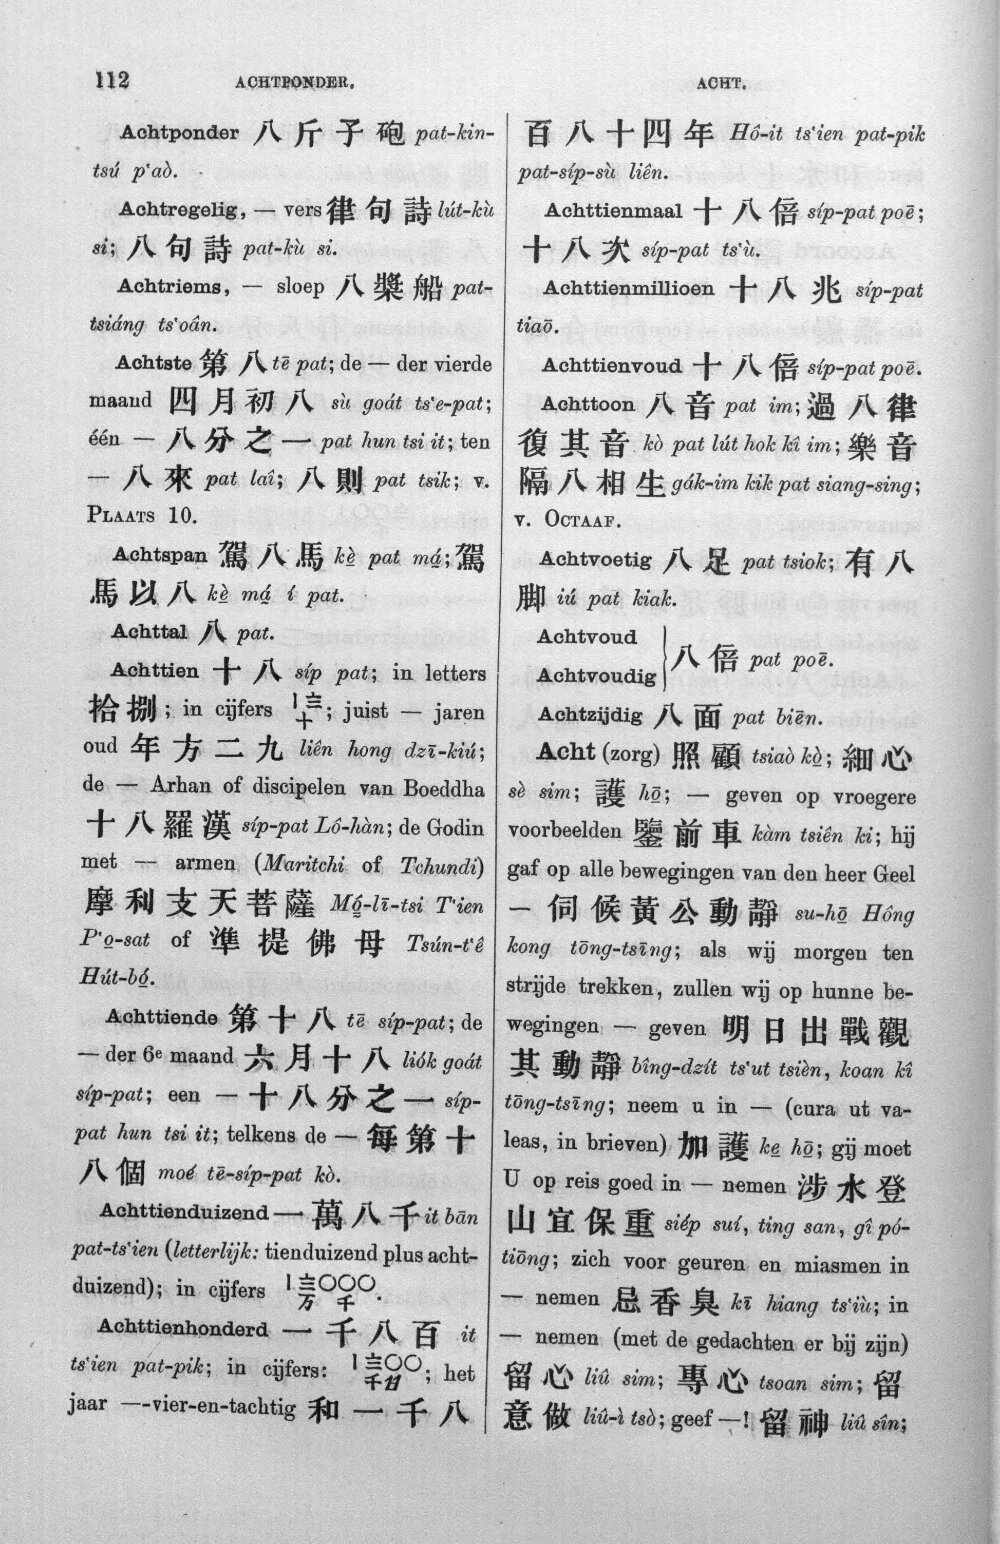 112
ACHTPONDER.
ACHT.
Achtponder 八斤予砲 pat-kin-
tsú p‘aò.
Achtregelig, — vers 律句詩 lút-kù
si; 八句詩 pat-kù si.
Achtriems, — sloep 八槳船 pat-
tsiáng ts‘oân.
Achtste 第八 tē pat; de — der vierde
maand 四月初八 sù goát ts‘e-pat;
één — 八分之一 pat hun tsi it; ten
— 八來 pat laî; 八則 pat tsik; v.
PLAATS 10.
Achtspan 駕八馬 kè pat má; 駕
馬以八 kè má í pat.
Achttal 八 pat.
Achttien 十八 síp pat; in letters
拾捌; in cijfers 〡亖十; juist — jaren
oud 年方二九 liên hong dzī-kiú;
de — Arhan of discipelen van Boeddha
十八羅漢 síp-pat Lô-hàn; de Godin
met — armen (Maritchi of Tchundi)
摩利支天菩薩 Mó̤-lī-tsi T‘ien
P‘o̤-sat of 準提佛母 Tsún-t‘ê
Hút-bó̤.
Achttiende 第十八 tē síp-pat; de
— der 6e maand 六月十八 liók goát
síp-pat; een — 十八分之一 síp-
pat hun tsi it; telkens de — 每第十
八個 moé tē-síp-pat kò.
Achttienduizend 一萬八千 it bān
pat-ts‘ien (letterlijk: tienduizend plus acht-
duizend); in cijfers 〡亖〇〇〇 万千.
Achttienhonderd 一千八百 it
ts‘ien pat-pik; in cijfers: 〡亖〇〇 千; het
jaar —-vier-en-tachtig 和一千八
百八十四年 Hô-it ts‘ien pat-pik
pat-síp-sù liên.
Achttienmaal 十八倍 síp-pat poē;
十八次 síp-pat ts‘ù.
Achttienmillioen 十八兆 síp-pat
tiaō.
Achttienvoud 十八倍 síp-pat poē.
Achttoon 八音 pat im; 過八律
復其音 kò pat lút hok kî im; 樂音
隔八相生 gák-im kik pat siang-sing;
v. OCTAAF.
Achtvoetig 八足 pat tsiok; 有八
脚 iú pat kiak.
Achtvoud
Achtvoudig
八倍 pat poē.
Achtzijdig 八面 pat biēn.
Acht (zorg) 照顧 tsiaò kò̤; 細心
sè sim; 護 hō̤; — geven op vroegere
voorbeelden 鑒前車 kàm tsiên ki; hij
gaf op alle bewegingen van den heer Geel
— 伺候黃公動靜 su-hō̤ Hông
kong tōng-tsīng; als wij morgen ten
strijde trekken, zullen wij op hunne be-
wegingen — geven 明日出戰觀
其動靜 bîng-dzít ts‘ut tsièn, koan kî
tōng-tsīng; neem u in — (cura ut va-
leas, in brieven) 加護 ke̤ hō̤; gij moet
U op reis goed in — nemen 涉水登
山宜保重 siép suí, ting san, gî pó-
tiōng; zich voor geuren en miasmen in
— nemen 忌香臭 kī hiang ts‘iù; in
— nemen (met de gedachten er bij zijn)
留心 liû sim; 專心 tsoan sim; 留
意做 liû-ì tsò; geef —! 留神 liû sîn;